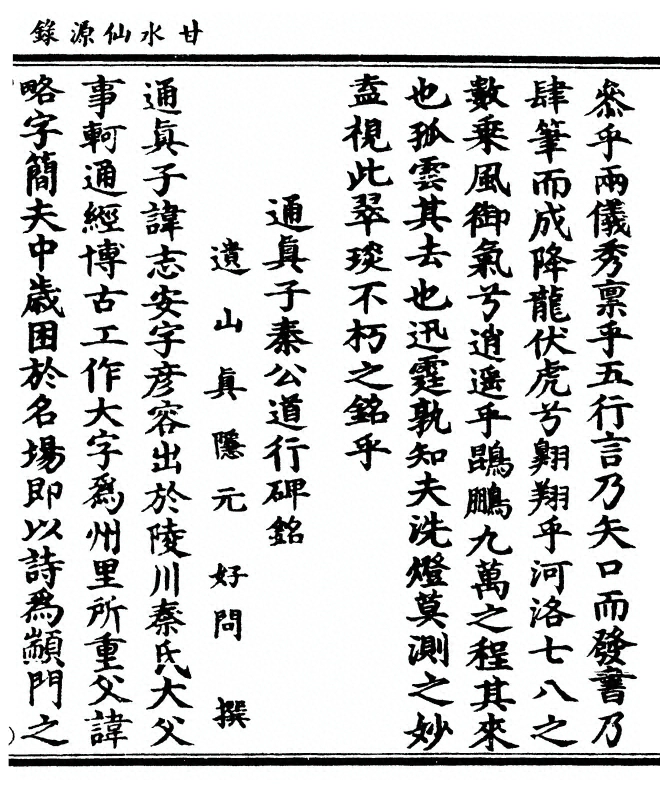 甘水仙源錄
叅乎兩儀秀禀乎五行言乃矢口而發書乃
肆筆而成降龍伏虎兮翺翔乎河洛七八之
數乘風御氣兮逍遥乎鵾鵬九萬之程其來
也孤雲其去也迅霆孰知夫洗燈莫測之妙
盍視此翠琰不朽之銘乎
通眞子秦公道行碑銘
遺山眞隱元好問撰
通眞子諱志安字彦容出於陵川秦氏大父
事軻通經博古工作大字爲州里所重父諱
略字簡夫中歲困於名場即以詩爲顓門之